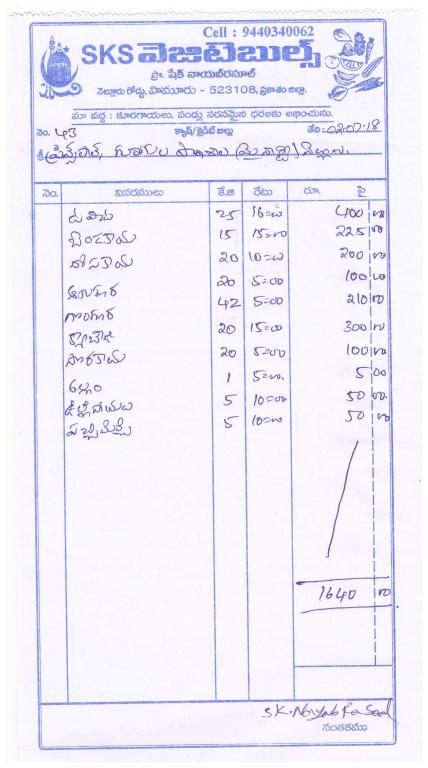 Cell : 9440340062
SKS వెజిటెబుల్స్
ప్రొ. షేక్ నాయబ్‌రసూల్
నెల్లూరు రోడ్డు, పామూరు - 523108, ప్రకాశం జిల్లా.
మా వద్ద : కూరగాయలు, పండ్లు సరసమైన ధరలకు లభించును.
నెం. 43 క్యాష్/క్రెడిట్ బిల్లు తేది: 02-07-18
శ్రీ
నెం. వివరములు కే.జి రేటు రూ. పై
25 16=00 400 00
వంకాయ 15 15=00 225 00
దోసకాయ 20 10=00 200 00
20 5=00 100 00
గోంగూర 42 5=00 210 00
క్యాబేజి 20 15=00 300 00
సొరకాయ 20 5=00 100 00
అల్లం 1 5=00 5 00
5 10=00 50 00
పచ్చిమిర్చి 5 10=00 50 00
1640 00
సంతకము